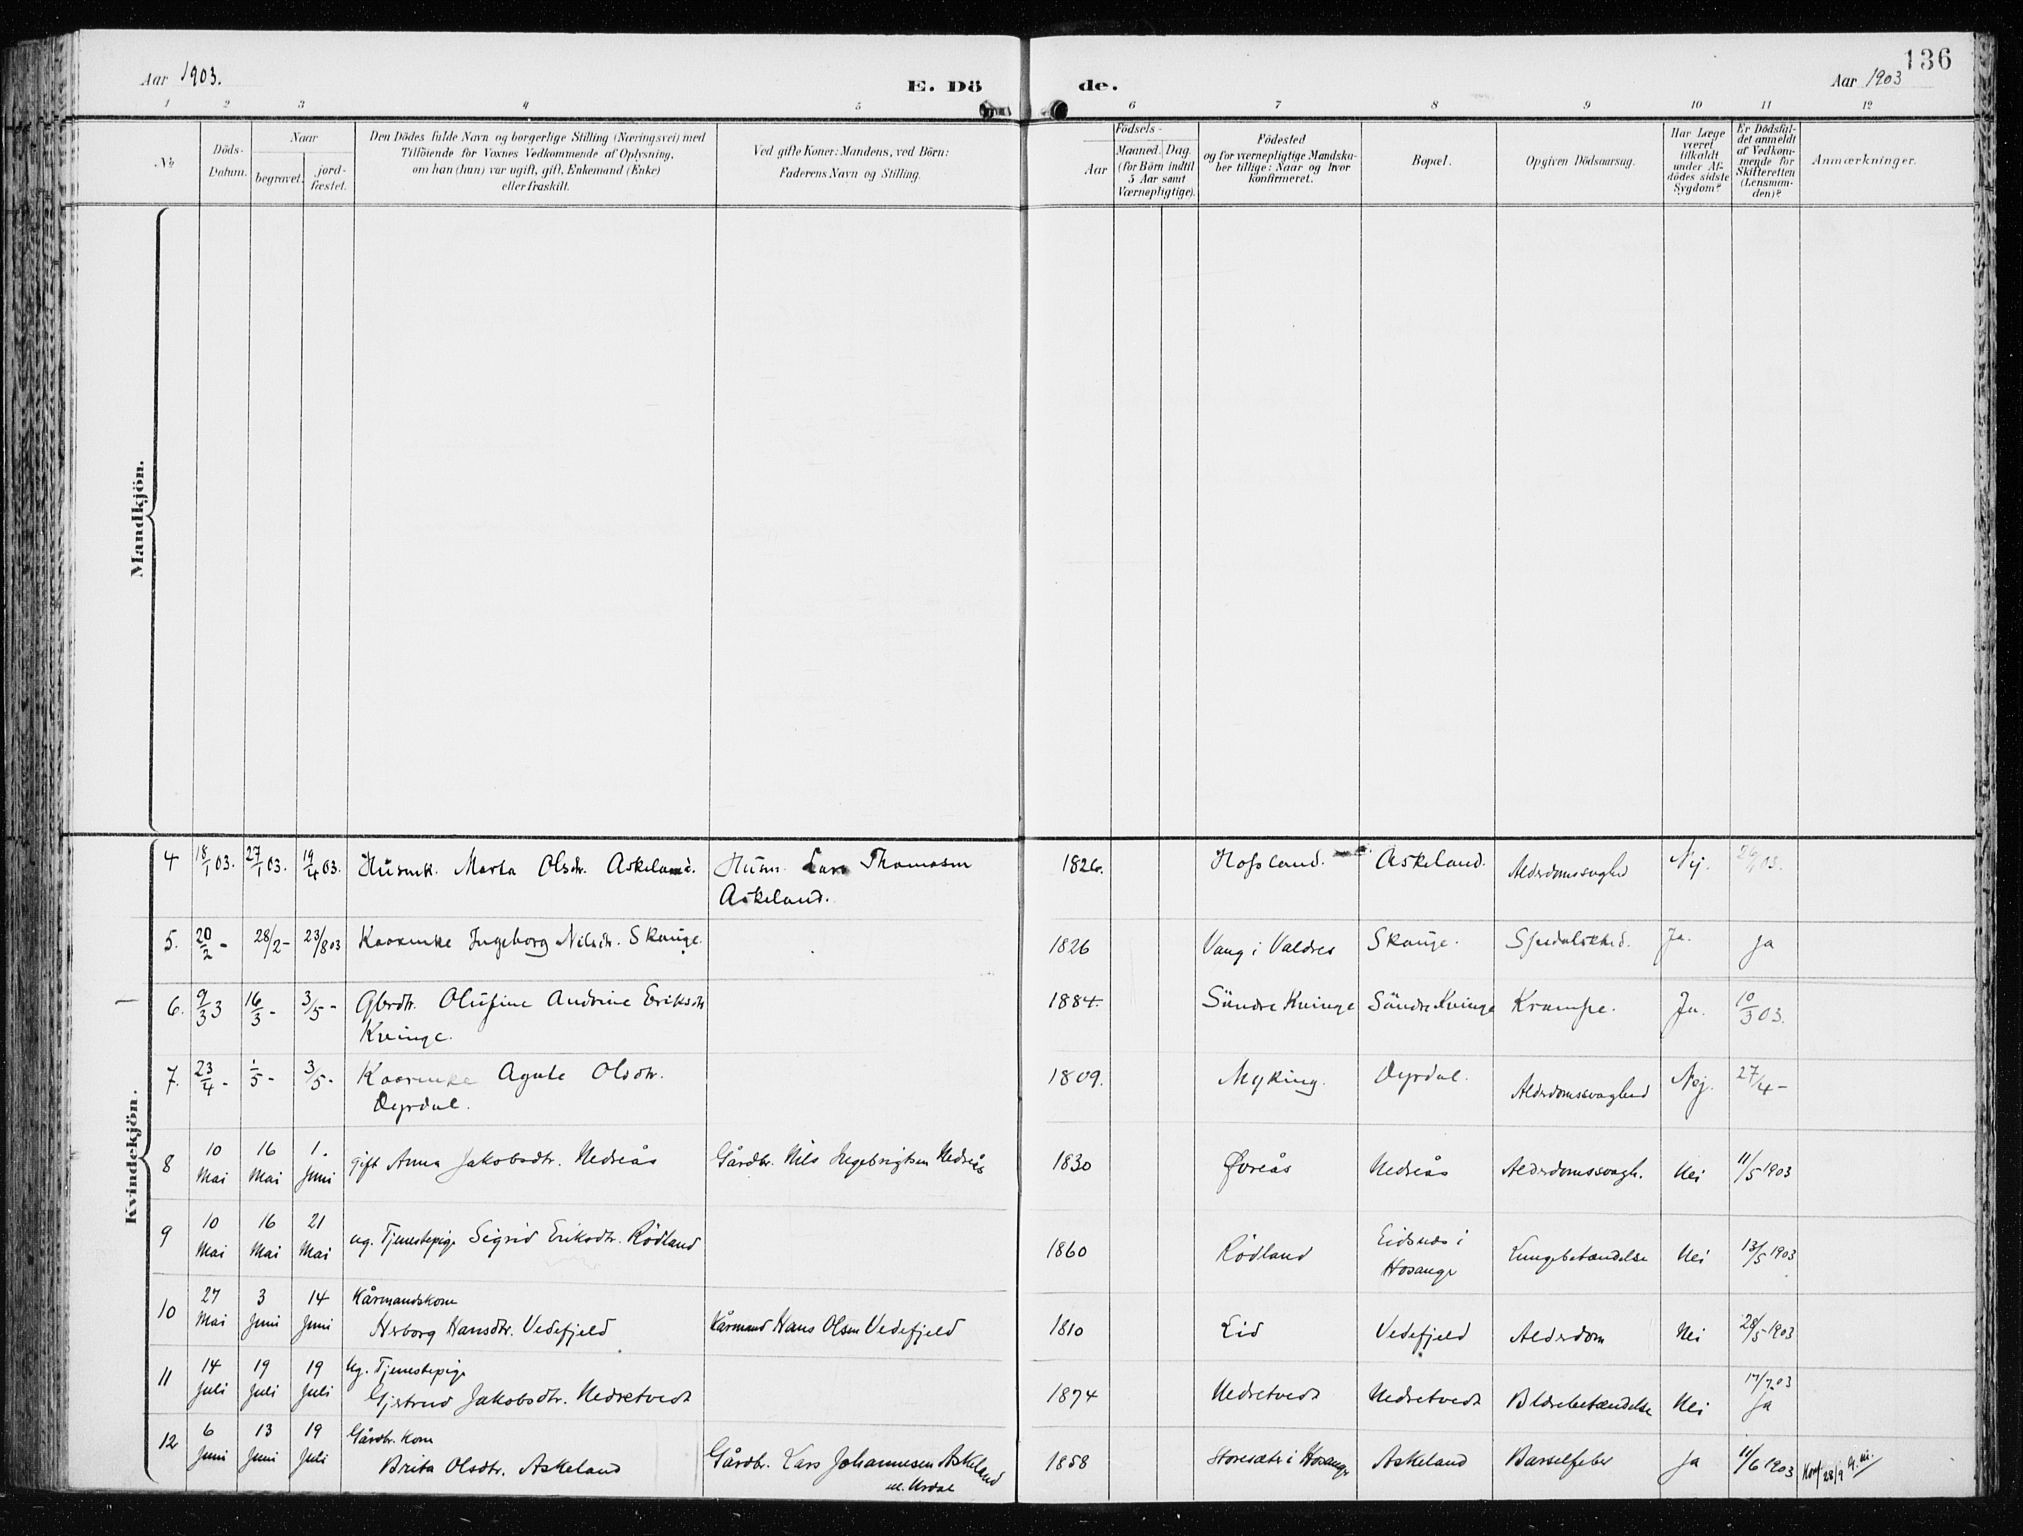 136
Aar 1903. E. Dö de. Aar 1903
1 2 3 4 5 6 7 8 9 10 11 12
No
Döds-
Datum.
Naar
begravet.
jord-
fæstet.
Den Dödes fulde Navn og borgerlige Stilling (Næringsvei) med
Tilföiende for Voxnes Vedkommende af Oplysning,
om han (hun) var ugift, gift, Enkemand (Enke)
eller fraskilt.
Ved gifte Koner: Mandens, ved Börn:
Faderens Navn og Stilling.
Födsels-
Aar
Maaned. Dag.
(for Börn indtil
5 Aar samt
Værnepligtige).
Födested
og for værnepligtige Mandska-
ber tillige: Naar og hvor
konfirmeret.
Bopæl.
Opgiven Dödsaarsag.
Har Læge
været
tilkaldt
under Af-
dödes sidste
Sygdom?
Er Dödsfal-
det anmeldt
af Vedkom-
mende for
Skifteretten
(Lensman-
den)?
Anmærkninger.
Mandkjön.
Kvindekjön.
4 18/1 03. 27/1 03. 19/4 03. Husmk. Marta Olsdr. Askeland. Husm. Lars Thomasen 1826. Hofsland. Askeland. Alderdomssvaghed Nej. 03.
Askeland.
5. 20/2 - 28/2 - 23/8 03 Kaarenke Ingeborg Nilsdr. Skauge. 1826 Vang i Valdres Skauge. Spedalskhed. Ja. Ja
6. 9/3 3 16/3 - 3/5 - Gbrdtr. Olufine Andrine Eriksdtr 1884. Söndre Kvinge Söndre Kvinge Krampe. Ja. 10/3 03.
Kvinge.
7. 23/4 - 1/5 - 3/5 - Kaarenke Agate Olsdtr. 1809. Myking. Dyrdal. Alderdomssvaghed Nej. 27/4 -
Dyrdal.
8 10 Mai 16 Mai 1. Juni gift Anna Jakobsdtr. Nedreås Gårdbr. Nils Ingebrigtsen Nedreås 1830 Øvreås Nedreås Alderdomssvagh. Nei 11/5 1903
9 10 Mai 16 Mai 21 Mai ug. Tjenestepige Sigrid Eriksdtr. Rödland 1860 Rödland Eidsnes i Hosanger Lungebetændelse Nei 13/5 1903
10 27 Mai 3 Juni 14 Juni Kårmandskone
Herborg Hansdtr. Vedefjeld Kårmand Hans Olsen Vedefjeld 1810 Eid Vedefjeld Alderdom Nei 28/5 1903
11 14 Juli 19 Juli 19 Juli Ug. Tjenestepige
Gjertrud Jakobsdtr. Nedretvedt 1874 Nedretvedt Nedretvedt Blærebetændelse Nei 17/7 03 Ja
12 6 Juni 13 Juni 19 Juli Gårdbr. kone
Brita Olsdtr. Askeland Gårdbr. Lars Johannesen Askeland 1858 Storesæter i Hosanger Askeland Barselfeber Ja 11/6 1903 28/9